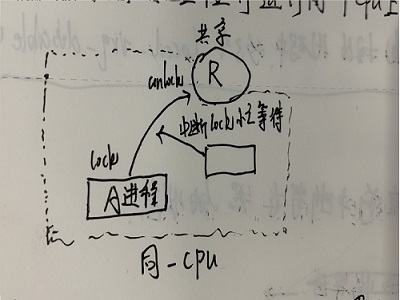 共享
R
unlock
中断lock水主等待
lock
A进程
同一CPU